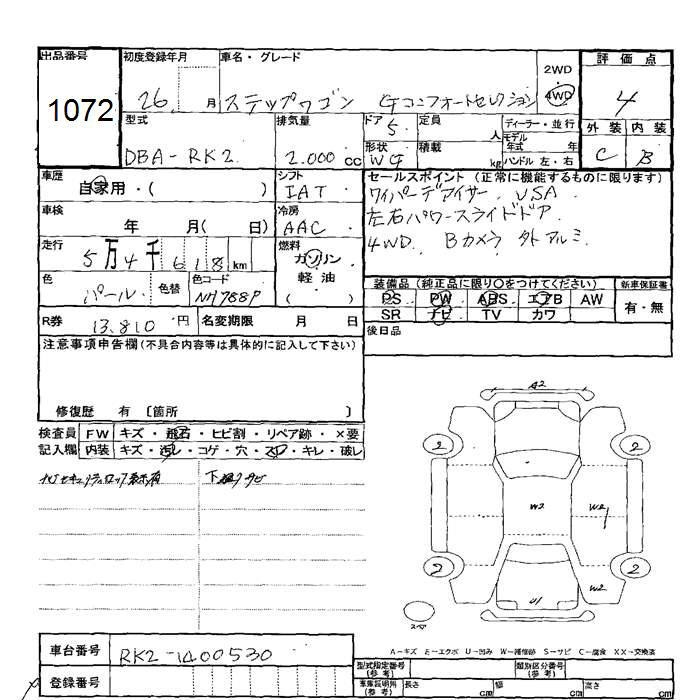 出品番号 初度登録年月 車名・グレード 2WD 評価点
1072 26 月 ステップワゴン Gコンフォートセレクション 4WD 4
型式 排気量 ドア 5 定員 人 ディーラー・並行 外装 内装
DBA-RK2 2.000 cc 形状 WG 積載 kg モデル年式 年 ハンドル 左・右 C B
車歴 自家用・( ) シフト IAT セールスポイント(正常に機能するものに限ります)
ワイパーデアイサー. VSA
車検 年 月( 日) 冷房 AAC 左右パワースライドドア
走行 5万4千618km 燃料 ガソリン 軽油 ( ) 4WD Bカメラ 外アルミ
色 パール 色替 色コード NH788P 装備品(純正品に限り○をつけてください) 新車保証書
PS PW ABS エアB AW 有・無
R券 13,810円 名変期限 月 日 SR ナビ TV カワ
注意事項申告欄(不具合内容等は具体的に記入して下さい) 後日品
修復歴 有 [箇所 ]
A2
検査員 FW キズ・飛石・ヒビ割・リペア跡・×要
記入欄 内装 キズ・汚レ・コゲ・穴・スレ・キレ・破レ
2 2
W2 W2
2 2
W2
U1
スペア
車台番号 RK2-1400530
A-キズ E-エクボ U-凹み W-補修跡 S-サビ C-腐食 XX-交換済
登録番号 型式指定番号(参考) 類別区分番号(参考)
車庫証明用(参考) 長さ cm 幅 cm 高さ cm